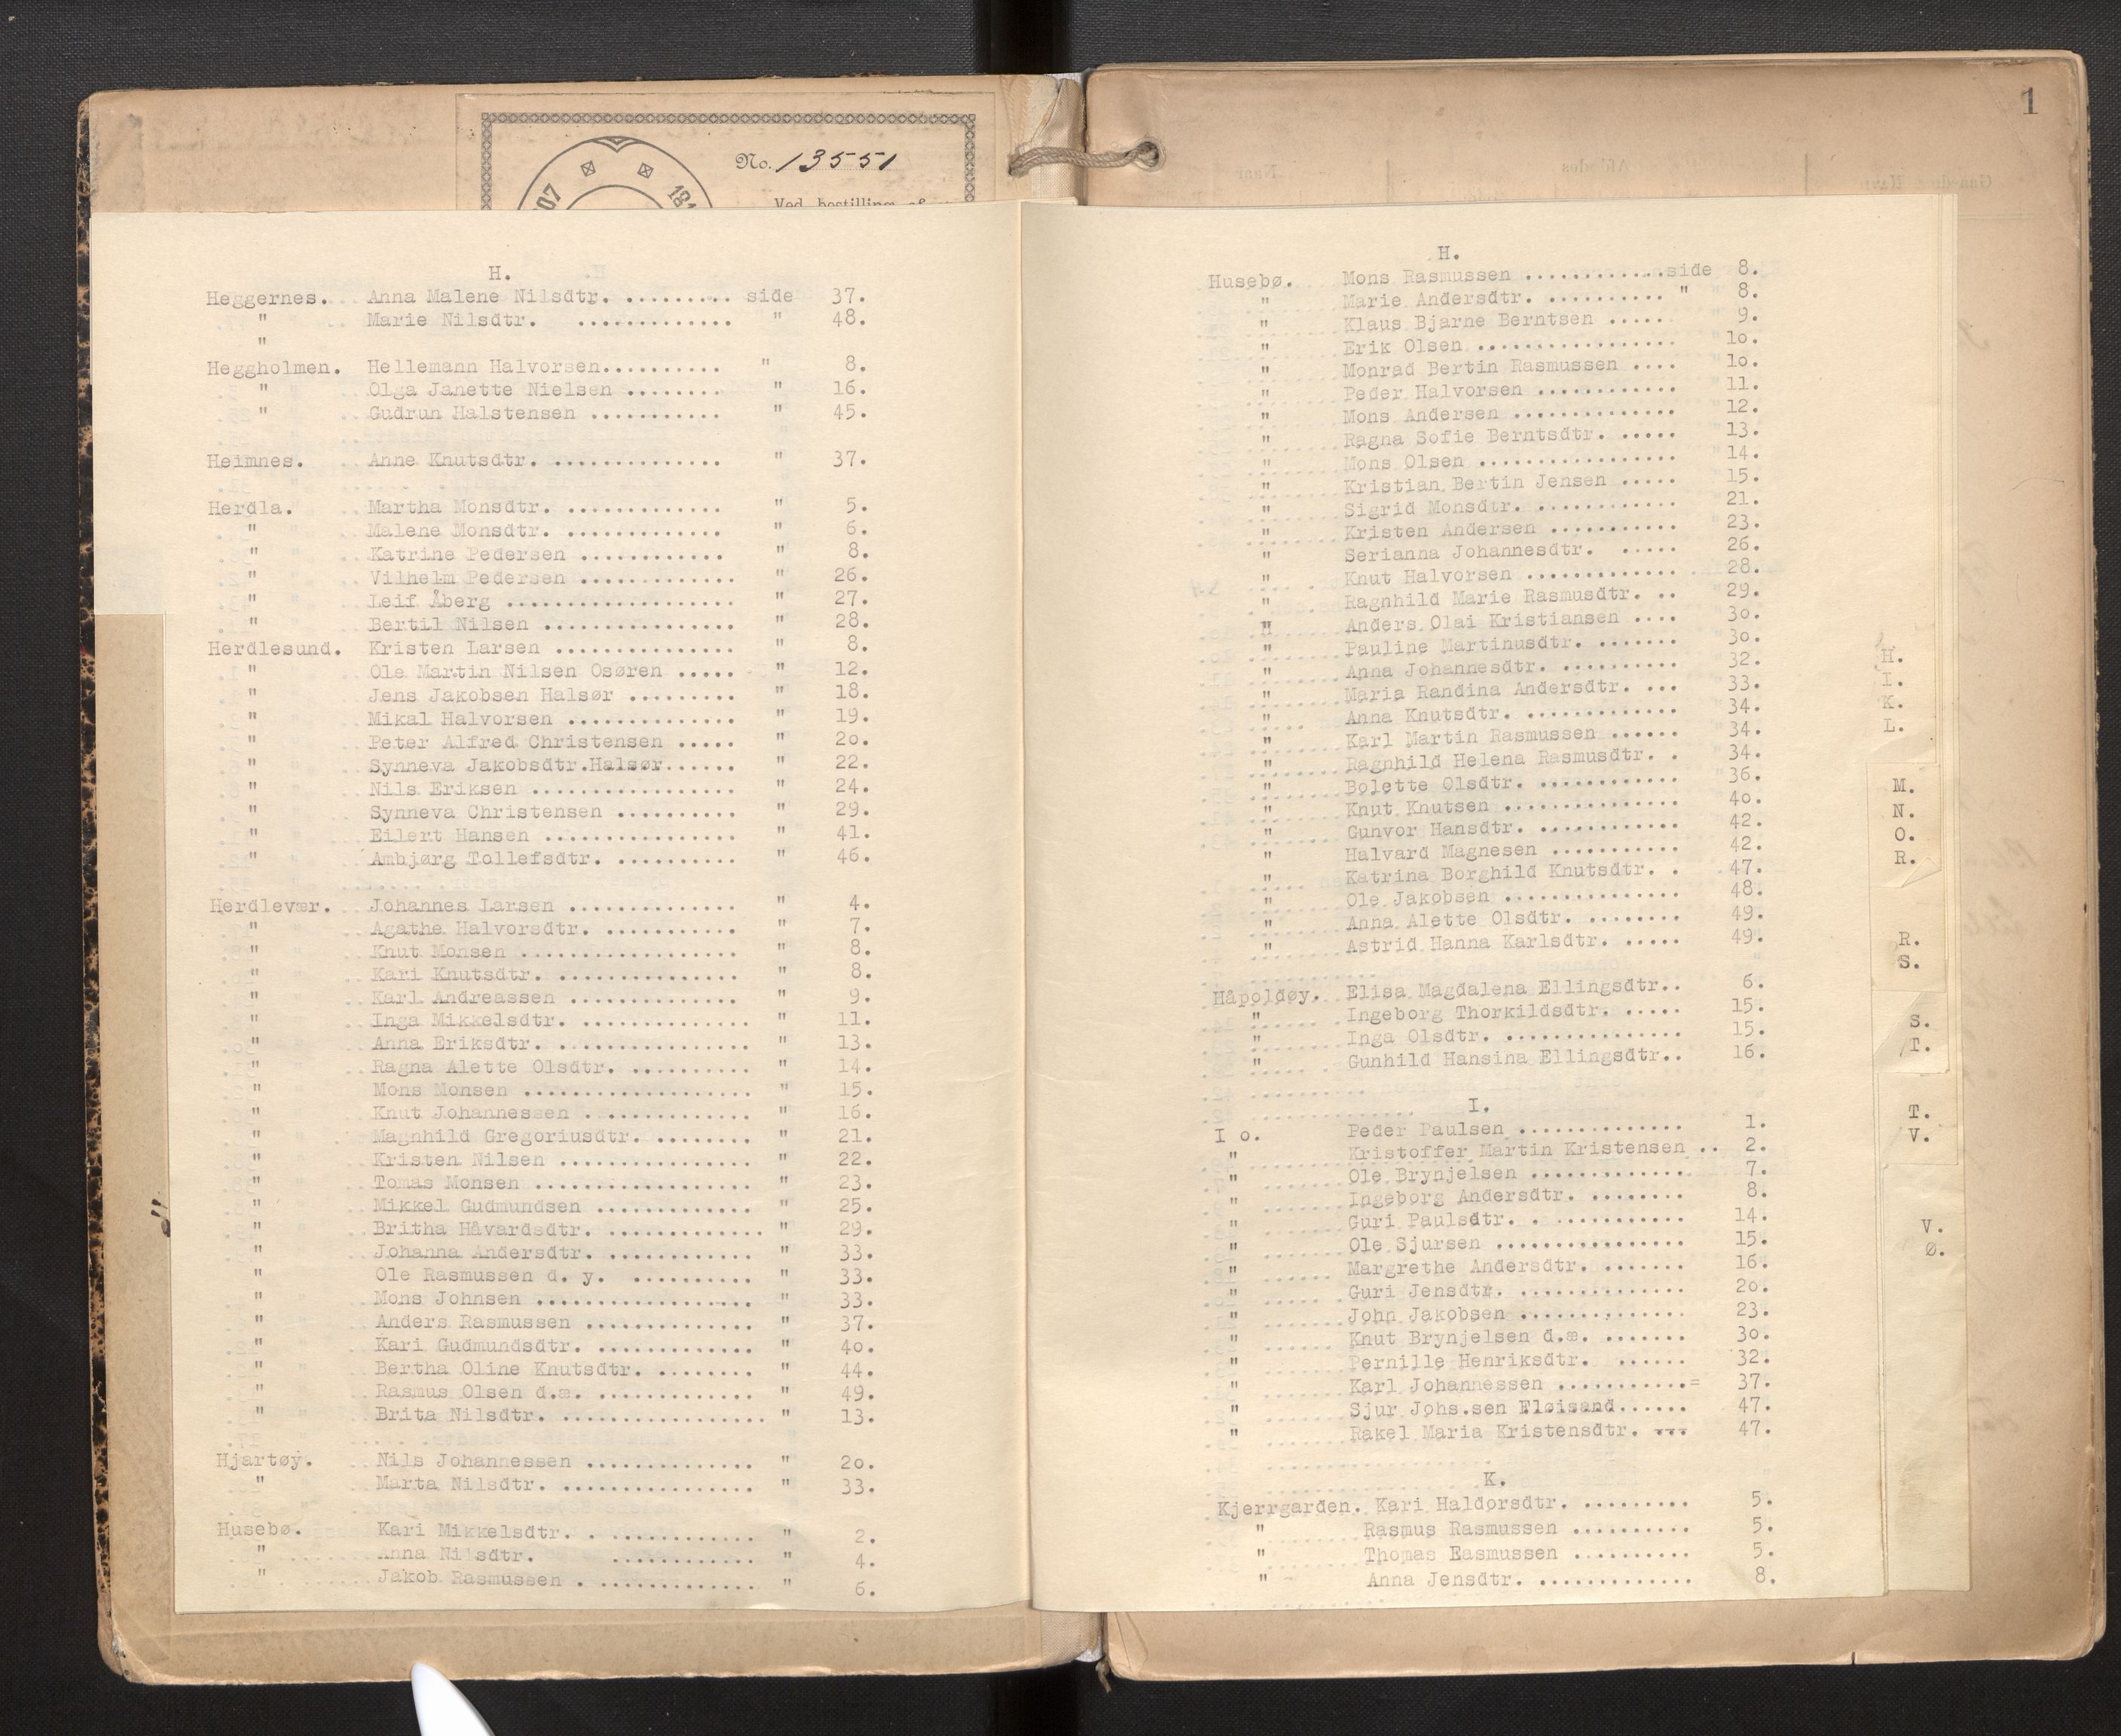 No. 13551
07 181
Ved bestilling af
H.
Heggernes. Anna Malene Nilsdtr. .......... side 37.
" Marie Nilsdtr. ............. " 48.
"
Heggholmen. Hellemann Halvorsen.......... " 8.
" Olga Janette Nielsen ........ " 16.
" Gudrun Halstensen ........... " 45.
Heimnes. Anne Knutsdtr. .............. " 37.
Herdla. Martha Monsdtr. ............. " 5.
" Malene Monsdtr. ............. " 6.
" Katrine Pedersen ............ " 8.
" Vilhelm Pedersen ............. " 26.
" Leif Åberg ................... " 27.
" Bertil Nilsen ................ " 28.
Herdlesund. Kristen Larsen ............... " 8.
" Ole Martin Nilsen Osøren ..... " 12.
" Jens Jakobsen Halsør ......... " 18.
" Mikal Halvorsen .............. " 19.
" Peter Alfred Christensen ..... " 2o.
" Synneva Jakobsdtr.Halsør...... " 22.
" Nils Eriksen ................. " 24.
" Synneva Christensen .......... " 29.
" Eilert Hansen ................ " 41.
" Ambjørg Tollefsdtr. .......... " 46.
Herdlevær. Johannes Larsen .............. " 4.
" Agathe Halvorsdtr. ........... " 7.
" Knut Monsen .................. " 8.
" Kari Knutsdtr. ............... " 8.
" Karl Andreassen .............. " 9.
" Inga Mikkelsdtr. .............. " 11.
" Anna Eriksdtr. ................ " 13.
" Ragna Alette Olsdtr. .......... " 14.
" Mons Monsen ................... " 15.
" Knut Johannessen . ............ " 16.
" Magnhild Gregoriusdtr. ........ " 21.
" Kristen Nilsen ................ " 22.
" Tomas Monsen .................. " 23.
" Mikkel Gudmundsen ............. " 25.
" Britha Håvardsdtr. ............. " 29.
" Johanna Andersdtr. ............ " 33.
" Ole Rasmussen d. y. .......... " 33.
" Mons Johnsen .................. " 33.
" Anders Rasmussen .............. " 37.
" Kari Gudmundsdtr. ............. " 4o.
" Bertha Oline Knutsdtr. ........ " 44.
" Rasmus Olsen d.æ. ............. " 49.
" Brita Nilsdtr. ................. " 13.
Hjartøy. Nils Johannessen .............. " 2o.
" Marta Nilsdtr. ................ " 33.
Husebø. Kari Mikkelsdtr. . ............ " 2.
" Anna Nilsdtr. ............ " 4.
" Jakob Rasmussen . ............. " 6.
1
H.
Husebø. Mons Rasmussen .............side 8.
" Marie Andersdtr. .......... " 8.
" Klaus Bjarne Berntsen ..... 9.
" Erik Olsen ................. 1o.
" Monrad Bertin Rasmussen .... 1o.
" Peder Halvorsen ............ 11.
" Mons Andersen .............. 12.
" Ragna Sofie Berntsdtr. ..... 13.
" Mons Olsen ................. 14.
" Kristian Bertin Jensen ..... 15.
" Sigrid Monsdtr. ............ 21.
" Kristen Andersen ........... 23.
" Serianna Johannesdtr. ..... 26.
" Knut Halvorsen ............. 28.
" Ragnhild Marie Rasmusdtr. .. 29.
" Anders Olai Kristiansen .... 3o.
" Pauline Martinusdtr. ....... 3o.
" Anna Johannesdtr. .......... 32.
" Maria Randina Andersdtr. ... 33.
" Anna Knutsdtr. ............. 34.
" Karl Martin Rasmussen ...... 34.
" Ragnhild Helena Rasmusdtr. . 34.
" Bolette Olsdtr. ............ 36.
" Knut Knutsen ............... 4o.
" Gunvor Hansdtr. ............ 42.
" Halvard Magnesen ........... 42.
" Katrina Borghild Knutsdtr. . 47.
" Ole Jakobsen ............... 48.
" Anna Alette Olsdtr. ........ 49.
" Astrid Hanna Karlsdtr. ..... 49.
Håpoldøy. Elisa Magdalena Ellingsdtr.. 6.
" Ingeborg Thorkildsdtr. ..... 15.
" Inga Olsdtr. ............... 15.
" Gunhild Hansina Ellingsdtr.. 16.
I.
I o. Peder Paulsen .............. 1.
" Kristoffer Martin Kristensen .. 2.
" Ole Brynjelsen ............. 7.
" Ingeborg Andersdtr. ........ 8.
" Guri Paulsdtr. . ........... 14.
" Ole Sjursen ................ 15.
" Margrethe Andersdtr. ....... 16.
" Guri Jensdtr. .............. 2o.
" John Jakobsen .............. 23.
" Knut Brynjelsen d.æ. ....... 3o.
" Pernille Henriksdtr. ...... 32.
" Karl Johannessen ...........= 37.
" Sjur Johs.sen Fløisand...... 47.
" Rakel Maria Kristensdtr. ... 47.
K.
Kjerrgarden. Kari Haldorsdtr. ......... 5.
" Rasmus Rasmussen .......... 5.
" Thomas Easmussen .......... 5.
" Anna Jensdtr. ............. 8.
H.
I.
K.
L.
M.
N.
O.
R.
R.
S.
S.
T.
T.
V.
V.
Ø.